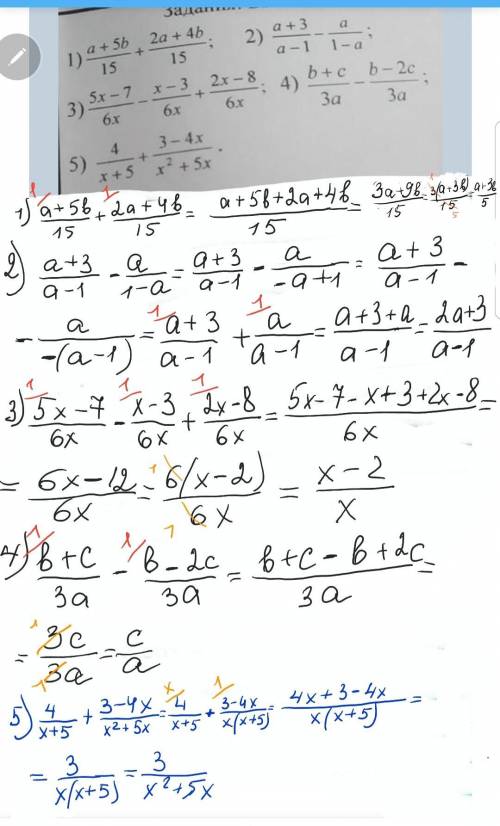 Задания
1) (a+5b)/15 + (2a+4b)/15; 2) (a+3)/(a−1) − a/(1−a);
3) (5x−7)/6x − (x−3)/6x + (2x−8)/6x; 4) (b+c)/3a − (b−2c)/3a;
5) 4/(x+5) + (3−4x)/(x²+5x).
1) (a+5b)/15 + (2a+4b)/15 = (a+5b+2a+4b)/15 = (3a+9b)/15 = 3(a+3b)/15 = (a+3b)/5
2) (a+3)/(a−1) − a/(1−a) = (a+3)/(a−1) − a/(−a+1) = (a+3)/(a−1) −
− a/(−(a−1)) = (a+3)/(a−1) + a/(a−1) = (a+3+a)/(a−1) = (2a+3)/(a−1)
3) (5x−7)/6x − (x−3)/6x + (2x−8)/6x = (5x−7−x+3+2x−8)/6x =
= (6x−12)/6x = 6(x−2)/6x = (x−2)/x
4) (b+c)/3a − (b−2c)/3a = (b+c−b+2c)/3a =
= 3c/3a = c/a
5) 4/(x+5) + (3−4x)/(x²+5x) = 4/(x+5) + (3−4x)/(x(x+5)) = (4x+3−4x)/(x(x+5)) =
= 3/(x(x+5)) = 3/(x²+5x)